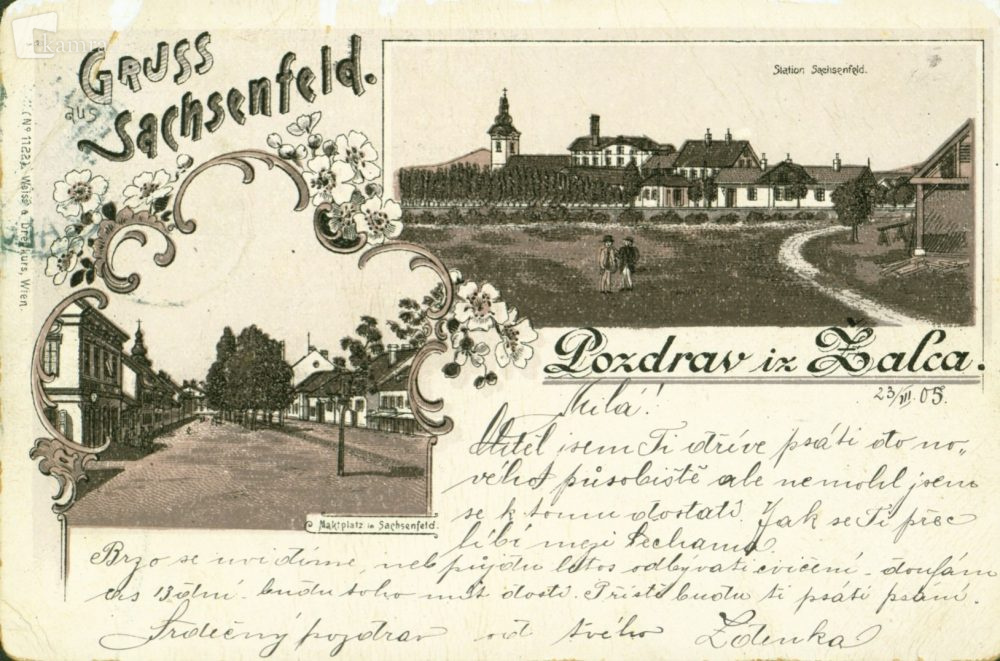 kamra
GRUSS
aus
Sachsenfeld.
Station Sachsenfeld.
Wien.
Pozdrav iz Žalca.
23/VII. 05.
Milá!
Chtěl jsem Ti dříve psáti do no-
vého působiště ale nemohl jsem
se k tomu dostati. Jak se Ti přec
líbí mezi Čechama
Marktplatz in Sachsenfeld.
Brzo se uvidíme, neb půjdu letos odbývati cvičení - doufám
13 dní - budu toho mít dosti. Příště budu ti psáti psaní.
Srdečný pozdrav od tvého Zdenka